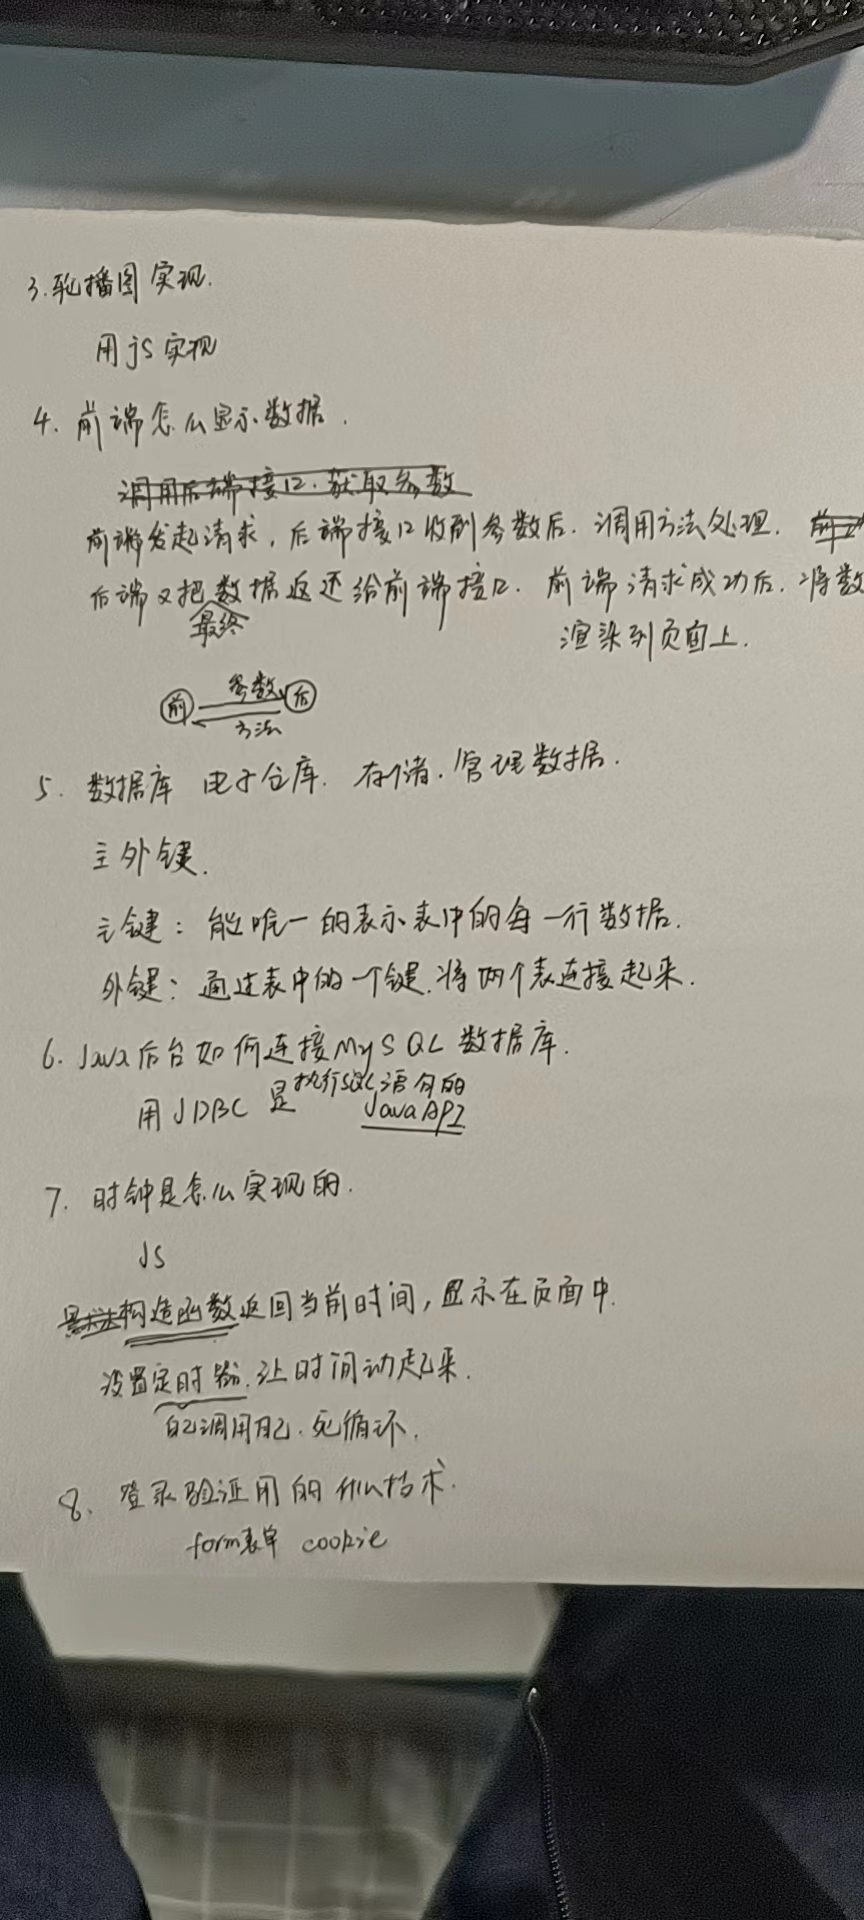 3.轮播图实现.
用js实现
4. 前端怎么显示数据.
调用后端接口.获取参数
前端发起请求,后端接口收到参数后.调用方法处理.
后端又把数据返还给前端接口.前端请求成功后.将数
最终
渲染到页面上.
前 参数 后
方法
5. 数据库 电子仓库. 存储.管理数据.
主外键.
主键: 能唯一的表示表中的每一行数据.
外键: 通过表中的一个键.将两个表连接起来.
6. Java后台如何连接MySQL数据库.
用JDBC 是执行SQL语句的
JavaAPI
7. 时钟是怎么实现的.
JS
构造函数返回当前时间,显示在页面中.
设置定时器.让时间动起来.
自己调用自己.死循环.
8. 登录验证用的什么技术.
form表单 cookie